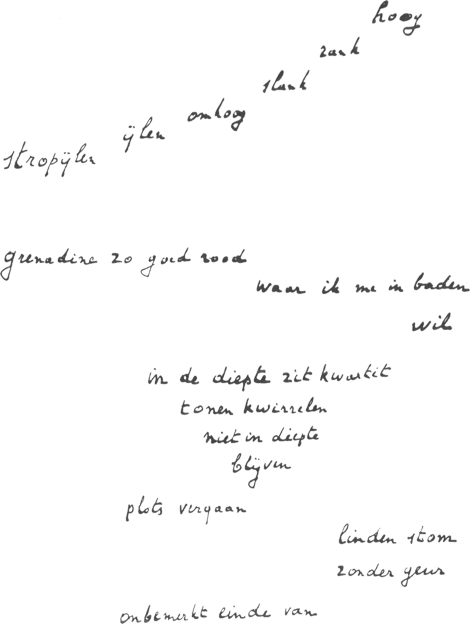 stropijlen ijlen omhoog slank rank hoog
grenadine zo goed rood
waar ik me in baden
wil
in de diepte zit kwartet
tonen kwirrelen
niet in diepte
blijven
plots vergaan
linden stom
zonder geur
onbemerkt einde van